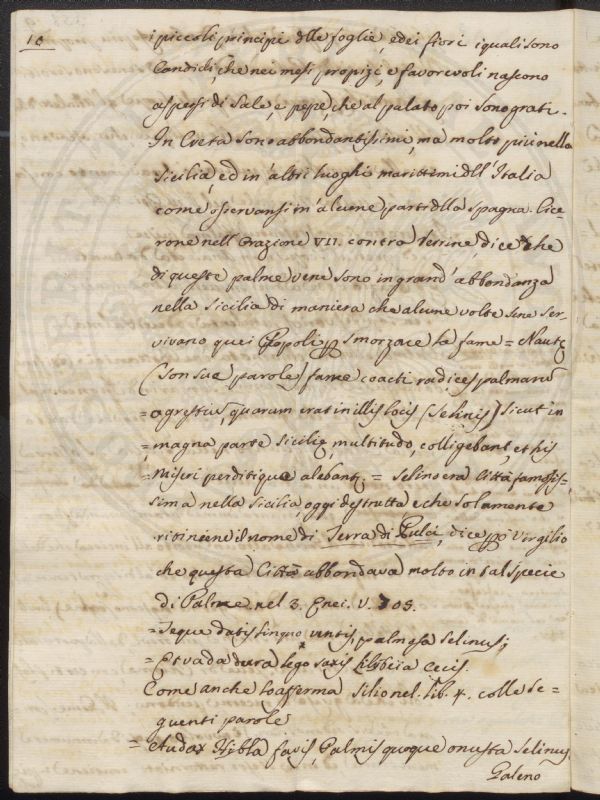 10
i piccoli principi dlle foglie, e dei fiori i quali sono
Candidi che nei mesi propizi, e favorevoli nascono
aspersi di Sale, e pepe, che al palato poi sono grati.
In Creta sono abbondantissimi, ma molto più nella
Sicilia, ed in altri luoghi marittimi dll' Italia
come osservansi in alcune parti dlla Spagna. Cice-
rone nell' Orazione VII. contra Verrine, dice che
di queste palme vene sono in grand' abbondanza
nella Sicilia di maniera che alcune volte sene ser-
vivano quei Popoli p smorzare la fame = Nautę
(son sue parole) fame coacti radices palmarū
= agrestiū, quarum erat in illis locis (Selinis) sicut in
= magna parte Sicilię multitudo, colligebant, et his
= miseri perditique alebantʒ. = Selins era Città famosis-
sima nella Sicilia, oggi destrutta, e che solamente
ritiene il nome di Terra di Pulci, dice pò Virgilio
che questa Città abbondava molto in tal specie
di Palme nel 3. Enei. V. 705.
= Teque datis linquo ventis, palmosa Selinus;
= Et vada dura lego saxis Lilybeia cecis.
Come anche l'afferma Silio nel. lib. 4. colle se=
guenti parole
= et udax Hibla favis, Palmis quoque onusta Selinus
Galeno